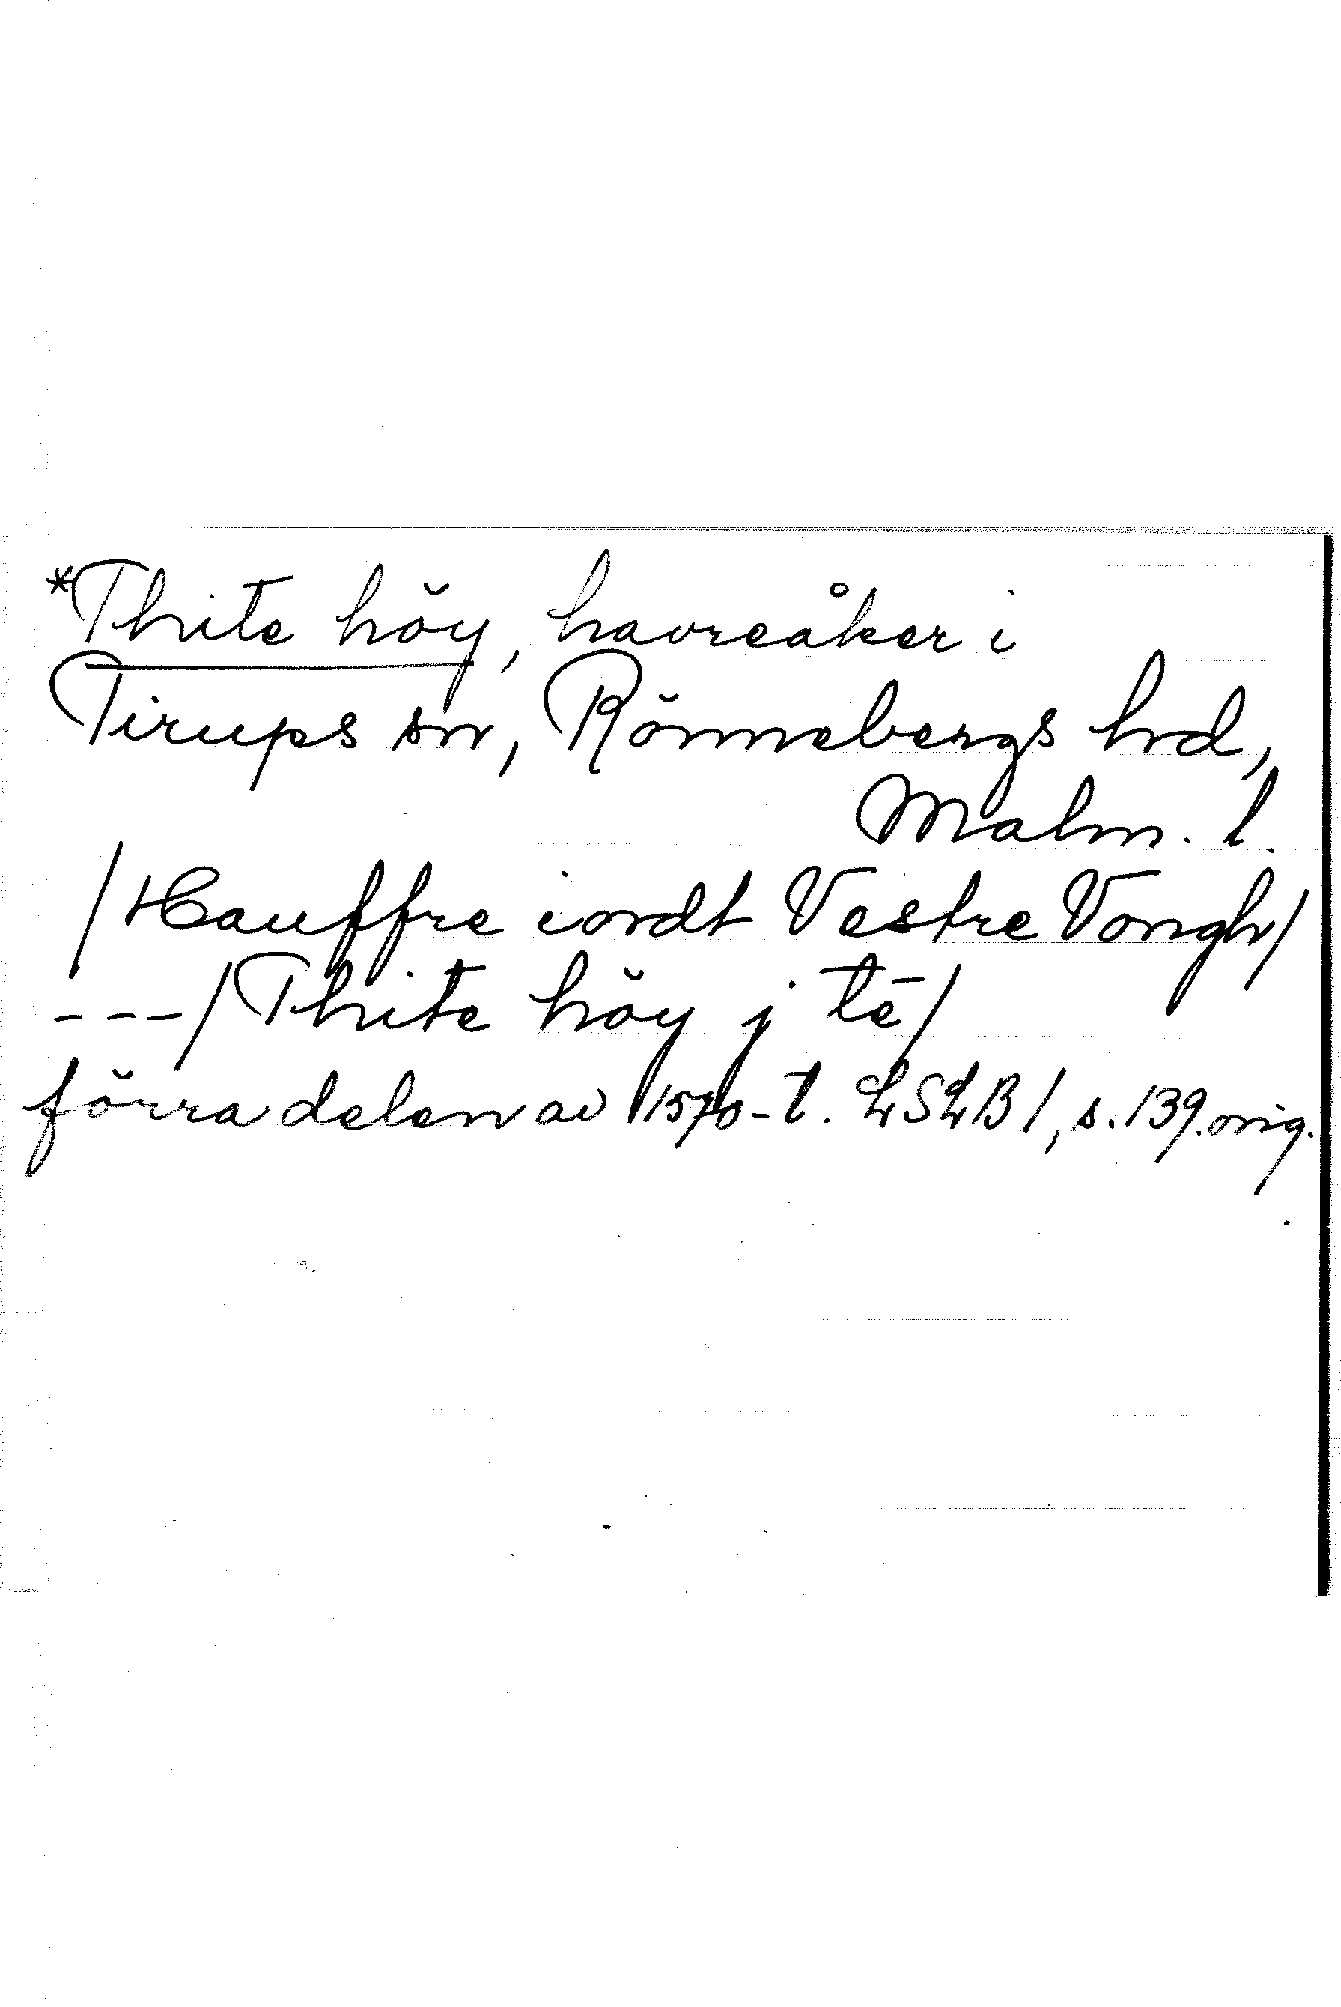 *Thite höy, havreåker i
Tirups sn, Rönnebergs hd,
Malm. l.
/Hauffre iordt Vestre Vongh/
---/Thite höy j tē/
förra delen av 1570-t. LSLB 1, s. 139. orig.